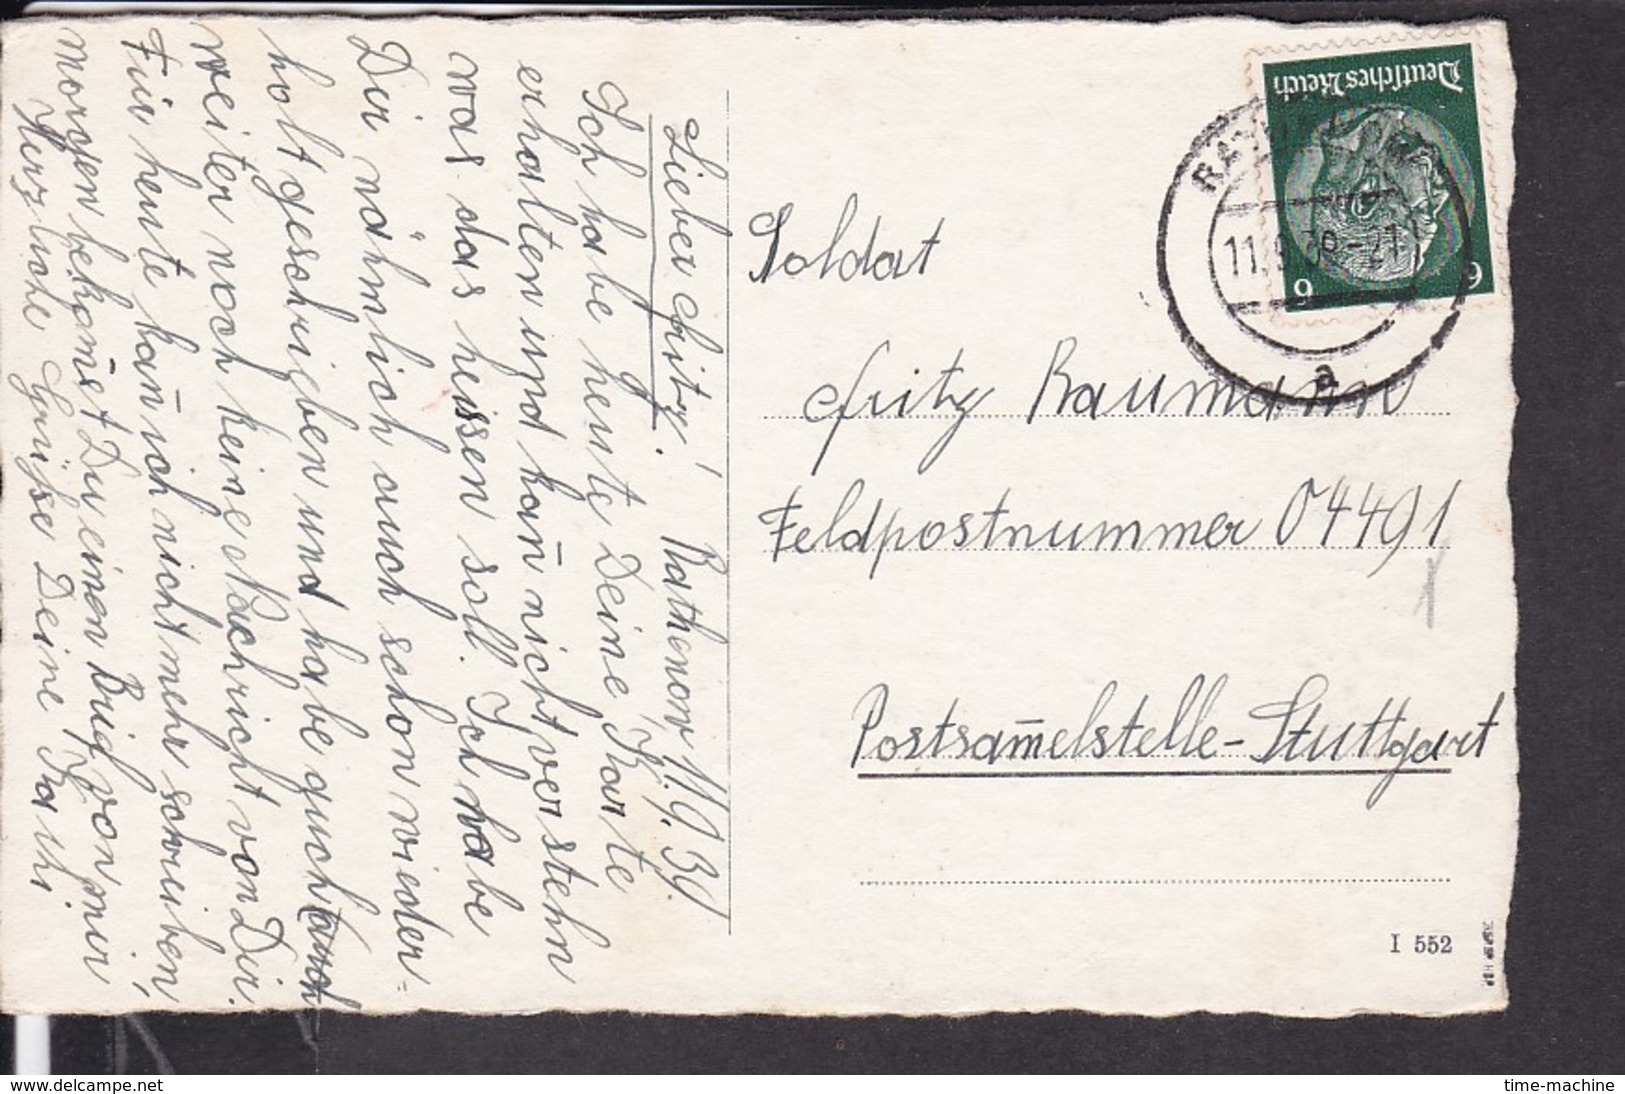 Lieber Fritz! Rathenow, 11.9.39
Ich habe heute Deine Karte
erhalten und kan̄ nicht verstehn
was das heissen soll. Ich habe
Dir nähmlich auch schon wieder-
holt geschrieben und habe auch (auch
weiter noch keine Nachricht von Dir.
Für heute kan̄ ich nicht mehr schreiben,
morgen bekom̄st Du einen Brief von mir
Herzliche Grüsse Deine Kathi.
Deutsches Reich
6 6
11.9.39-21
a
Soldat
Fritz Baumann
Feldpostnummer 04491
Postsam̄elstelle-Stuttgart
I 552
www.delcampe.net
time-machine